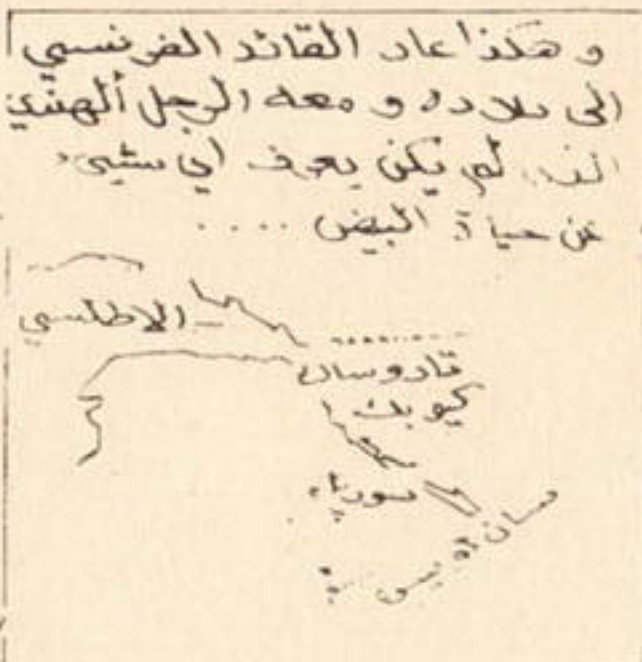 و هكذا عاد القائد الفرنسي
الى بلاده و معه الرجل ألهندي
الذي لم يكن يعرف اي شيء
عن حياة البيض ....
الاطلسي
كيوبك
سوريا
سان